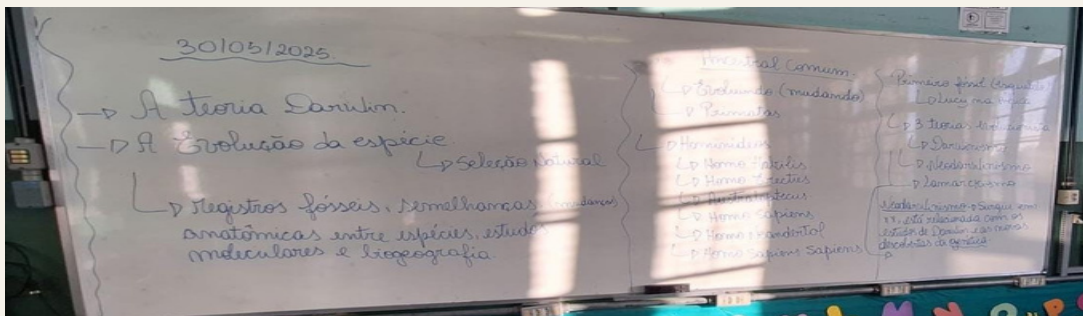 30/05/2025.
→ A teoria Darwin.
→ A Evolução da espécie
↳ Seleção Natural
↳ Registros fósseis, semelhanças (mudanças)
anatômicas entre espécies, estudos
moleculares e biogeografia.
Ancestral Comum.
↳ Evoluindo (mudando)
↳ Primatas
↳ Hominídeos
↳ Homo Habilis
↳ Homo Erectus
↳ Homo Sapiens
↳ Homo Neandertal
↳ Homo Sapiens Sapiens
Primeiro fóssil (esqueleto)
↳ Lucy
↳ 3 teorias Evolucionista
↳ Darwinismo
↳ Neodarwinismo
↳ Lamarckismo
Neodarwinismo → Surge em
XX, está relacionada com os
estudos de Darwin e as novas
descobertas da genética